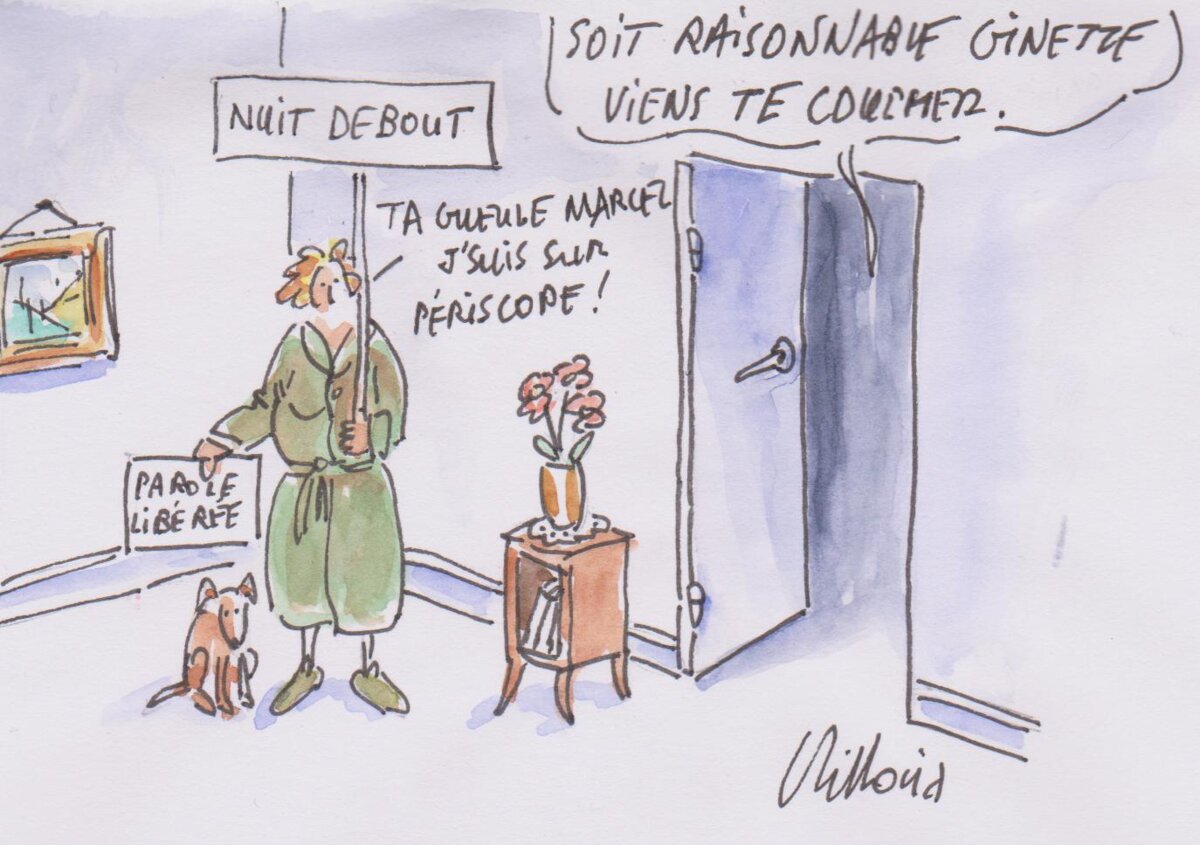 SOIT RAISONNABLE GINETTE
VIENS TE COUCHER.
NUIT DEBOUT
TA GUEULE MARCEL
J'SUIS SUR
PÉRISCOPE !
PAROLE
LIBÉRÉE